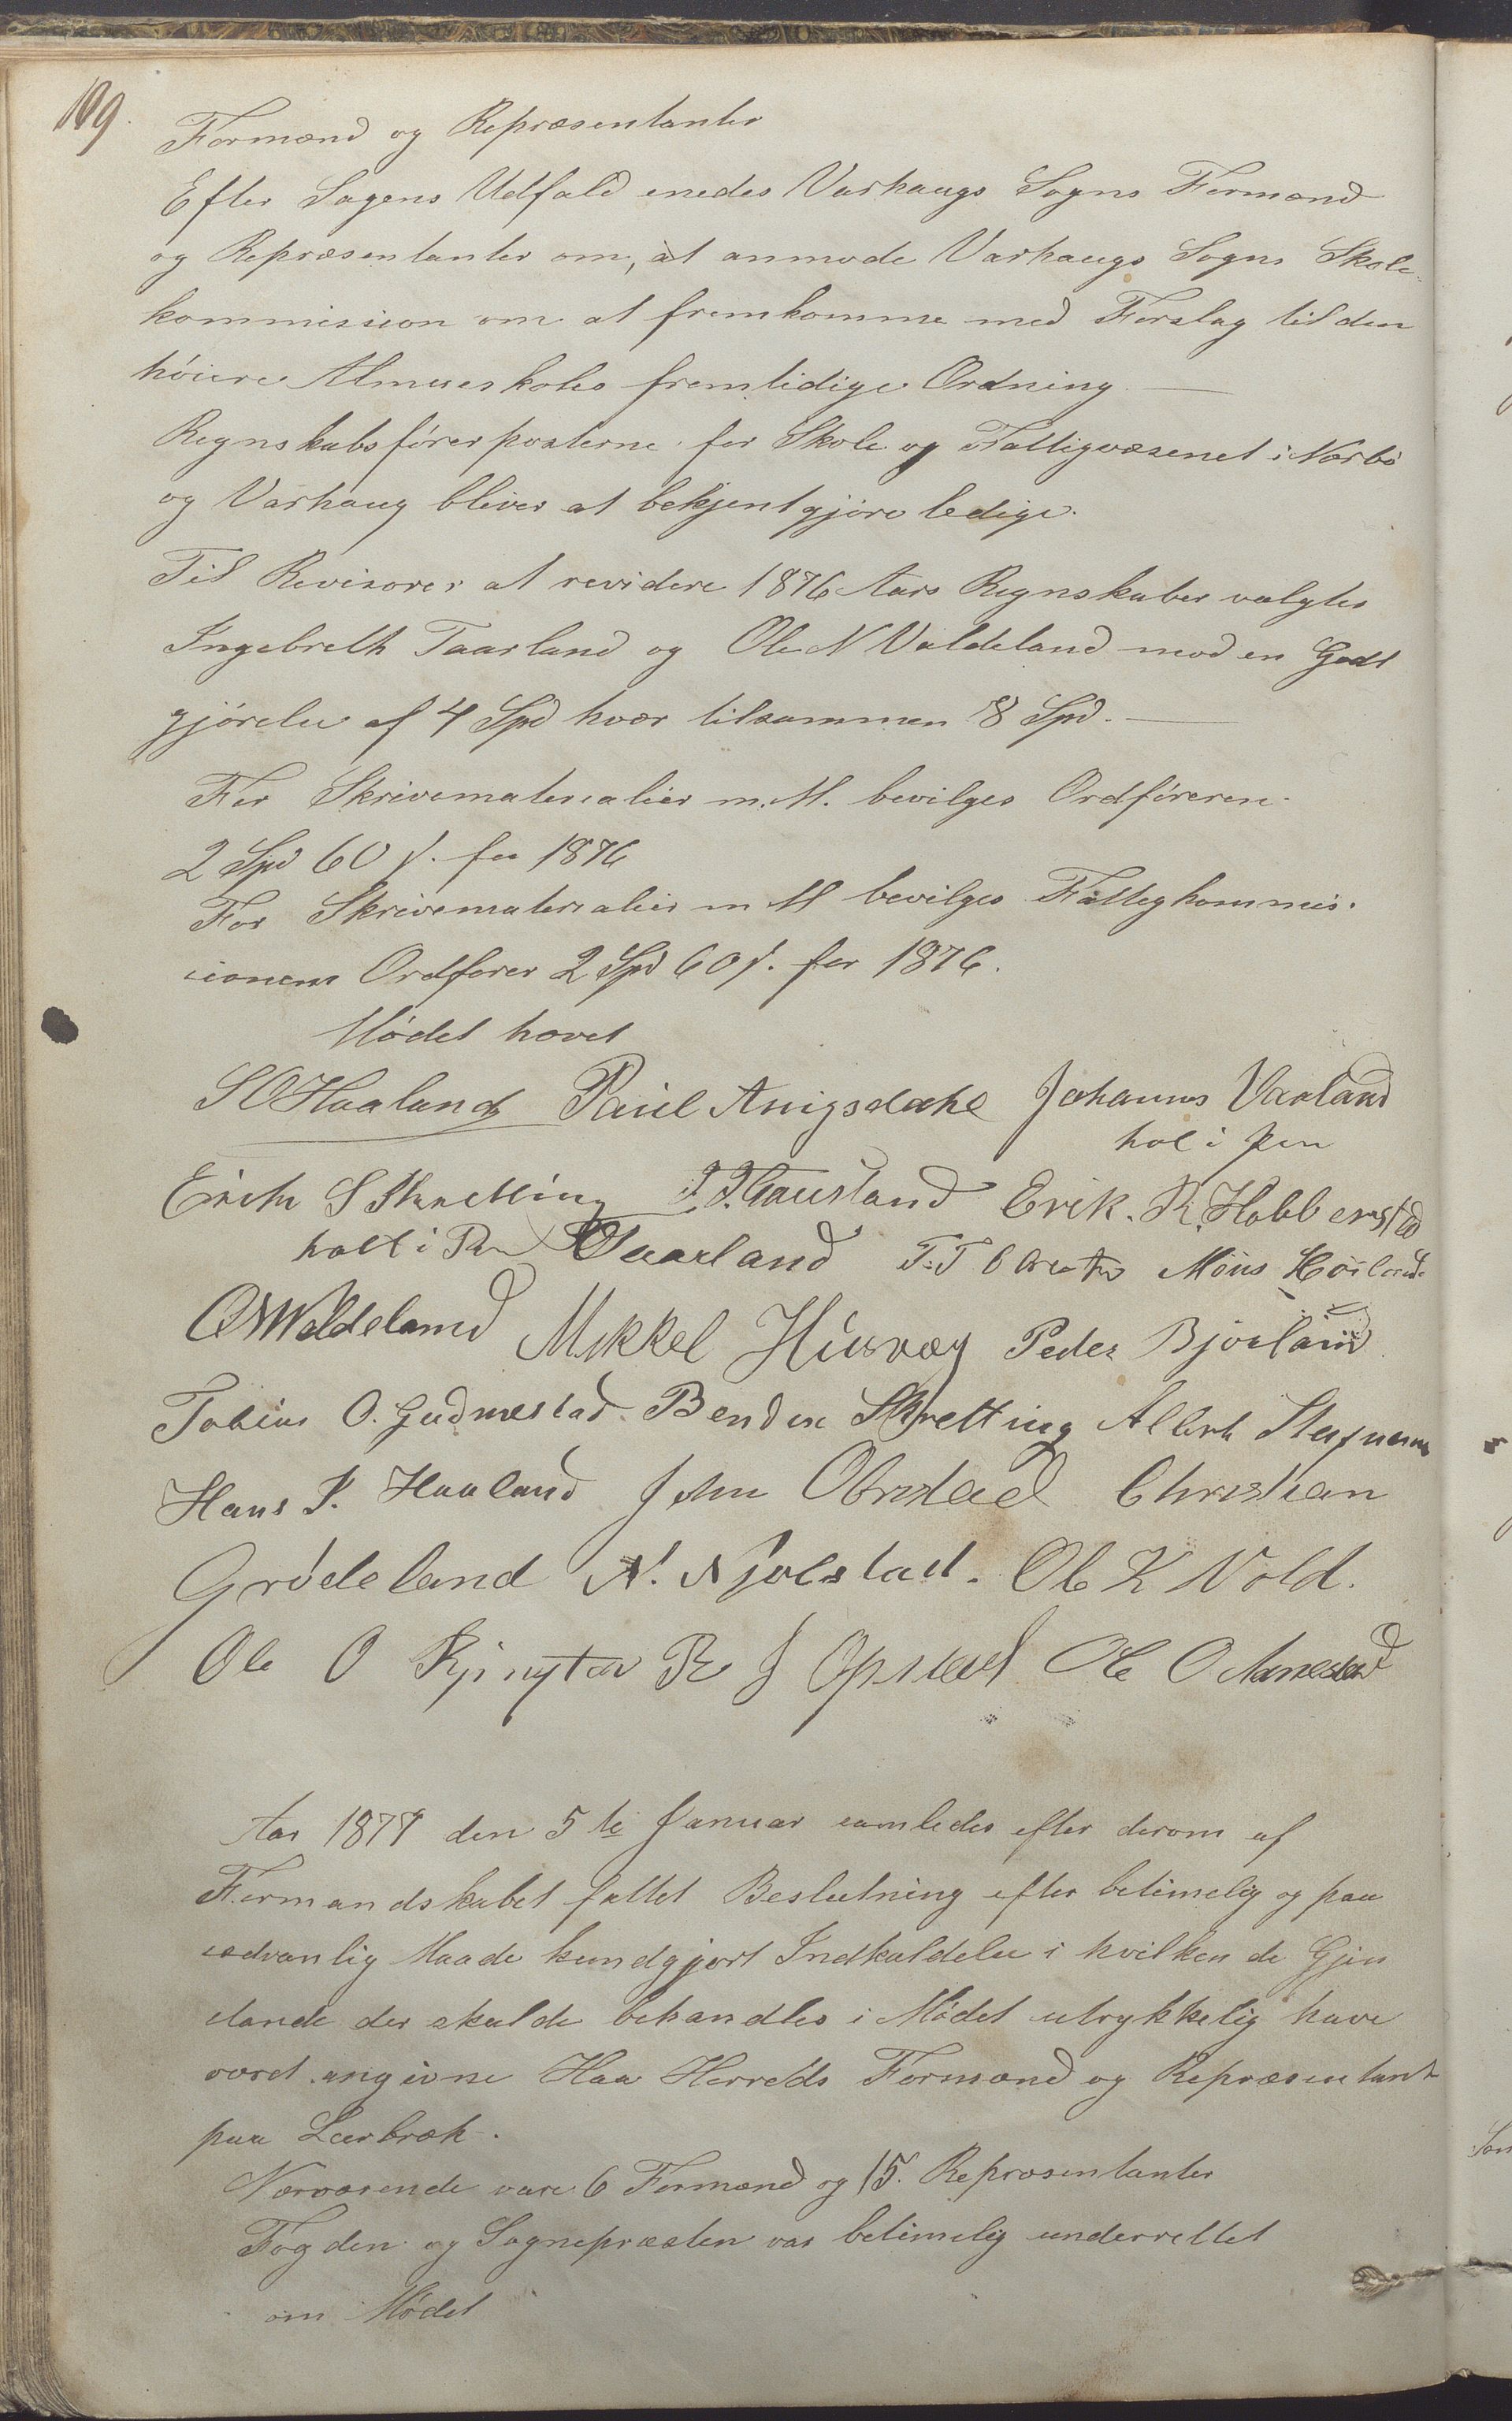 199.
Formænd og Repræsentanter
Efter Sagens Udfald enedes Varhaugs Sogns Formænd
og Repræsentanter om, at anmode Varhaugs Sogns Skole
kommission om at fremkomme med Forslag til den
höiere Almueskoles fremtidige Ordning
Regnskabsförerposterne for Skole og Fattigvæsenet i Nærbö
og Varhaug bliver at bekjentgjöre ledige.
Til Revisorer at revidere 1876 Aars Regnskaber valgtes
Ingebreth Taarland og Ole N Valdeland mod en Godt
gjörelse af 4 Spd hver tilsammen 8 Spd.
For Skrivematerialier m.M. bevilges Ordföreren
2 Spd 60 s. for 1876
For Skrivematerialier m M bevilges Fattigkommis.
sionens Ordförer 2 Spd 60 s. for 1876.
Mödet hævet
S O Haaland Paul Anigsdahl Johannes Varland
hol i pen
Erich S Skretting J. J. Gausland Erik. R. Hobberstad
holt i Pen Taarland T. T Möns Höiland
O N Waldeland Mikkel Husvæg Peder Bjorland
Tobias O. Gudmestad. Bendix Skretting Albert
Hans P. Haaland John Obrestad Christian
Grödeland N. Njolstad. Ole K Vold.
Ole O R J Opstad Ole O Aanestad
Aar 1877 den 5te Januar samledes efter derom af
Formandskabet fattet Beslutning efter betimelig og paa
sædvanlig Maade kundgjort Indkaldelse i hvilken de Gjen
stande der skulde behandles i Mödet utrykkelig have
været angivne Haa Herreds Formænd og Repræsentant
paa Leerbræk.
Nærværende vare 6 Formænd og 15. Repræsentanter
Fogden og Sognepræsten var betimelig underrettet
om Mödet